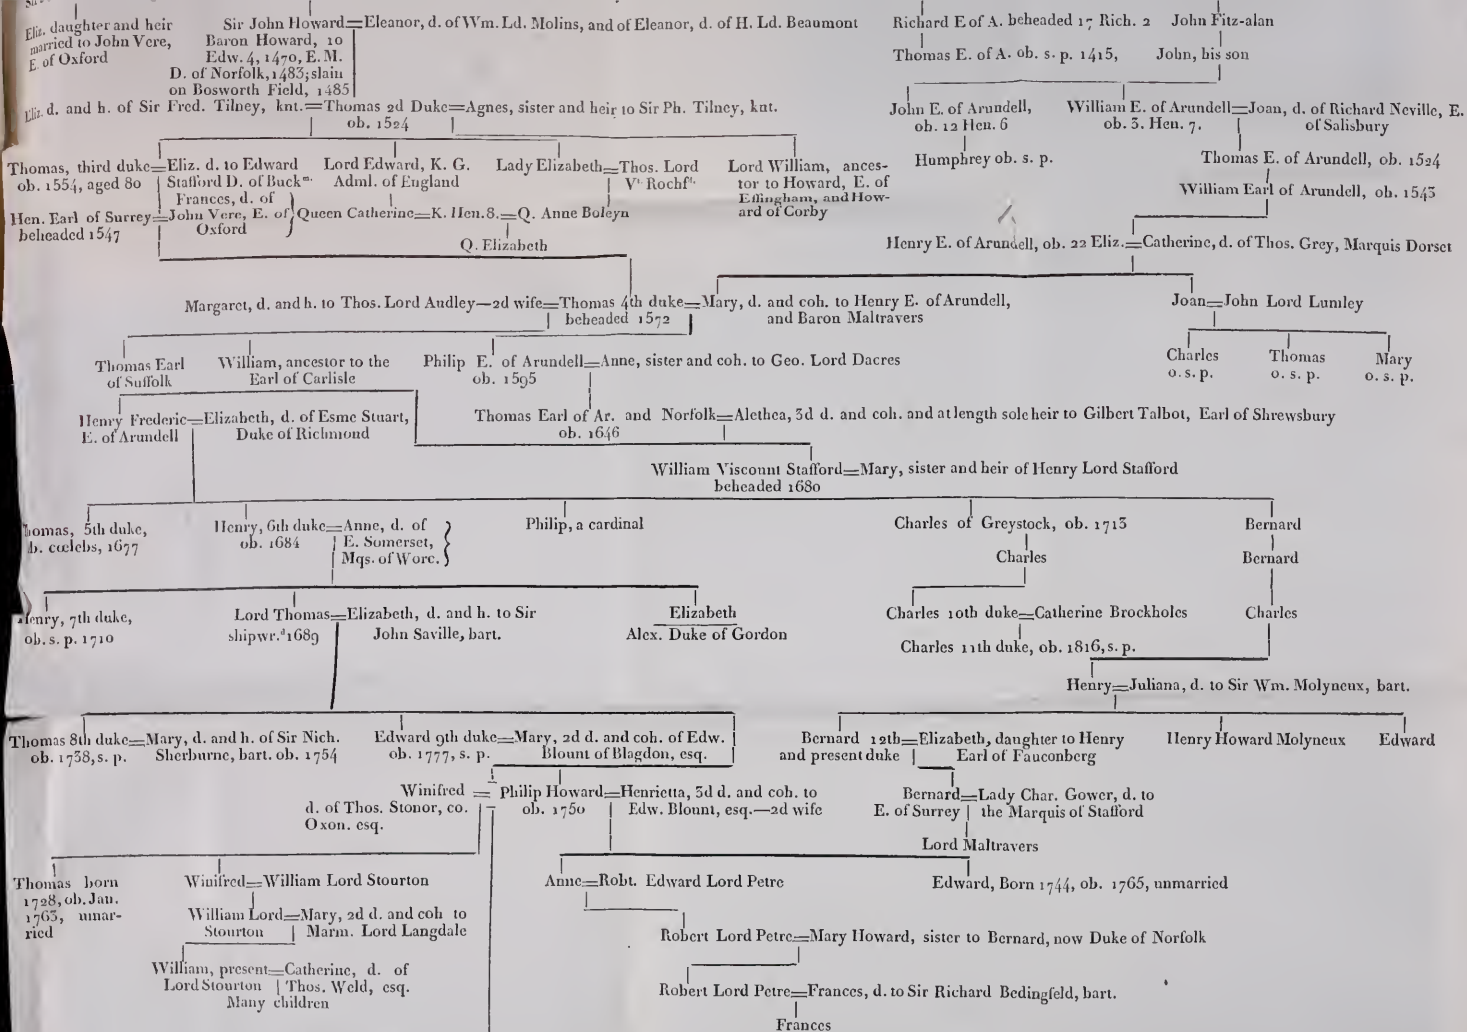 Eliz. daughter and heir
married to John Vere,
E. of Oxford
Sir John Howard=Eleanor, d. of Wm. Ld. Molins, and of Eleanor, d. of H. Ld. Beaumont
Baron Howard, 10
Edw. 4, 1470, E. M.
D. of Norfolk, 1483; slain
on Bosworth Field, 1485
Richard E of A. beheaded 17 Rich. 2
John Fitz-alan
Thomas E. of A. ob. s. p. 1415,
John, his son
Eliz. d. and h. of Sir Fred. Tilney, knt.=Thomas 2d Duke=Agnes, sister and heir to Sir Ph. Tilney, knt.
ob. 1524
John E. of Arundell,
ob. 12 Hen. 6
William E. of Arundell=Joan, d. of Richard Neville, E.
ob. 3. Hen. 7.
of Salisbury
Humphrey ob. s. p.
Thomas E. of Arundell, ob. 1524
William Earl of Arundell, ob. 1543
Thomas, third duke=Eliz. d. to Edward
ob. 1554, aged 80
Stafford D. of Buckm.
Lord Edward, K. G.
Adml. of England
Lady Elizabeth=Thos. Lord
Vt. Rochft.
Lord William, ances-
tor to Howard, E. of
Effingham, and How-
ard of Corby
Frances, d. of
Hen. Earl of Surrey=John Vere, E. of
beheaded 1547
Oxford
Queen Catherine=K. Hen. 8.=Q. Anne Boleyn
Q. Elizabeth
Henry E. of Arundell, ob. 22 Eliz.=Catherine, d. of Thos. Grey, Marquis Dorset
Margaret, d. and h. to Thos. Lord Audley—2d wife=Thomas 4th duke=Mary, d. and coh. to Henry E. of Arundell,
beheaded 1572
and Baron Maltravers
Joan=John Lord Lumley
Charles
o. s. p.
Thomas
o. s. p.
Mary
o. s. p.
Thomas Earl
of Suffolk
William, ancestor to the
Earl of Carlisle
Philip E. of Arundell=Anne, sister and coh. to Geo. Lord Dacres
ob. 1595
Henry Frederic=Elizabeth, d. of Esme Stuart,
E. of Arundell
Duke of Richmond
Thomas Earl of Ar. and Norfolk=Alethea, 3d d. and coh. and at length sole heir to Gilbert Talbot, Earl of Shrewsbury
ob. 1646
William Viscount Stafford=Mary, sister and heir of Henry Lord Stafford
beheaded 1680
homas, 5th duke,
b. cœlebs, 1677
Henry, 6th duke=Anne, d. of
ob. 1684
E. Somerset,
Mqs. of Worc.
Philip, a cardinal
Charles of Greystock, ob. 1713
Bernard
Charles
Bernard
Henry, 7th duke,
ob. s. p. 1710
Lord Thomas=Elizabeth, d. and h. to Sir
shipwr.d 1689
John Saville, bart.
Elizabeth
Alex. Duke of Gordon
Charles 10th duke=Catherine Brockholes
Charles
Charles 11th duke, ob. 1816, s. p.
Henry=Juliana, d. to Sir Wm. Molyneux, bart.
Thomas 8th duke=Mary, d. and h. of Sir Nich.
ob. 1738, s. p.
Sherburne, bart. ob. 1754
Edward 9th duke=Mary, 2d d. and coh. of Edw.
ob. 1777, s. p.
Blount of Blagdon, esq.
Bernard 12th=Elizabeth, daughter to Henry
and present duke
Earl of Fauconberg
Henry Howard Molyneux
Edward
Winifred = Philip Howard=Henrietta, 3d d. and coh. to
d. of Thos. Stonor, co.
Oxon. esq.
ob. 1750
Edw. Blount, esq.—2d wife
Bernard=Lady Char. Gower, d. to
E. of Surrey
the Marquis of Stafford
Lord Maltravers
Thomas born
1728, ob. Jan.
1763, unmar-
ried
Winifred=William Lord Stourton
William Lord=Mary, 2d d. and coh to
Stourton
Marm. Lord Langdale
William, present=Catherine, d. of
Lord Stourton
Thos. Weld, esq.
Many children
Anne=Robt. Edward Lord Petre
Edward, Born 1744, ob. 1765, unmarried
Robert Lord Petre=Mary Howard, sister to Bernard, now Duke of Norfolk
Robert Lord Petre=Frances, d. to Sir Richard Bedingfeld, bart.
Frances